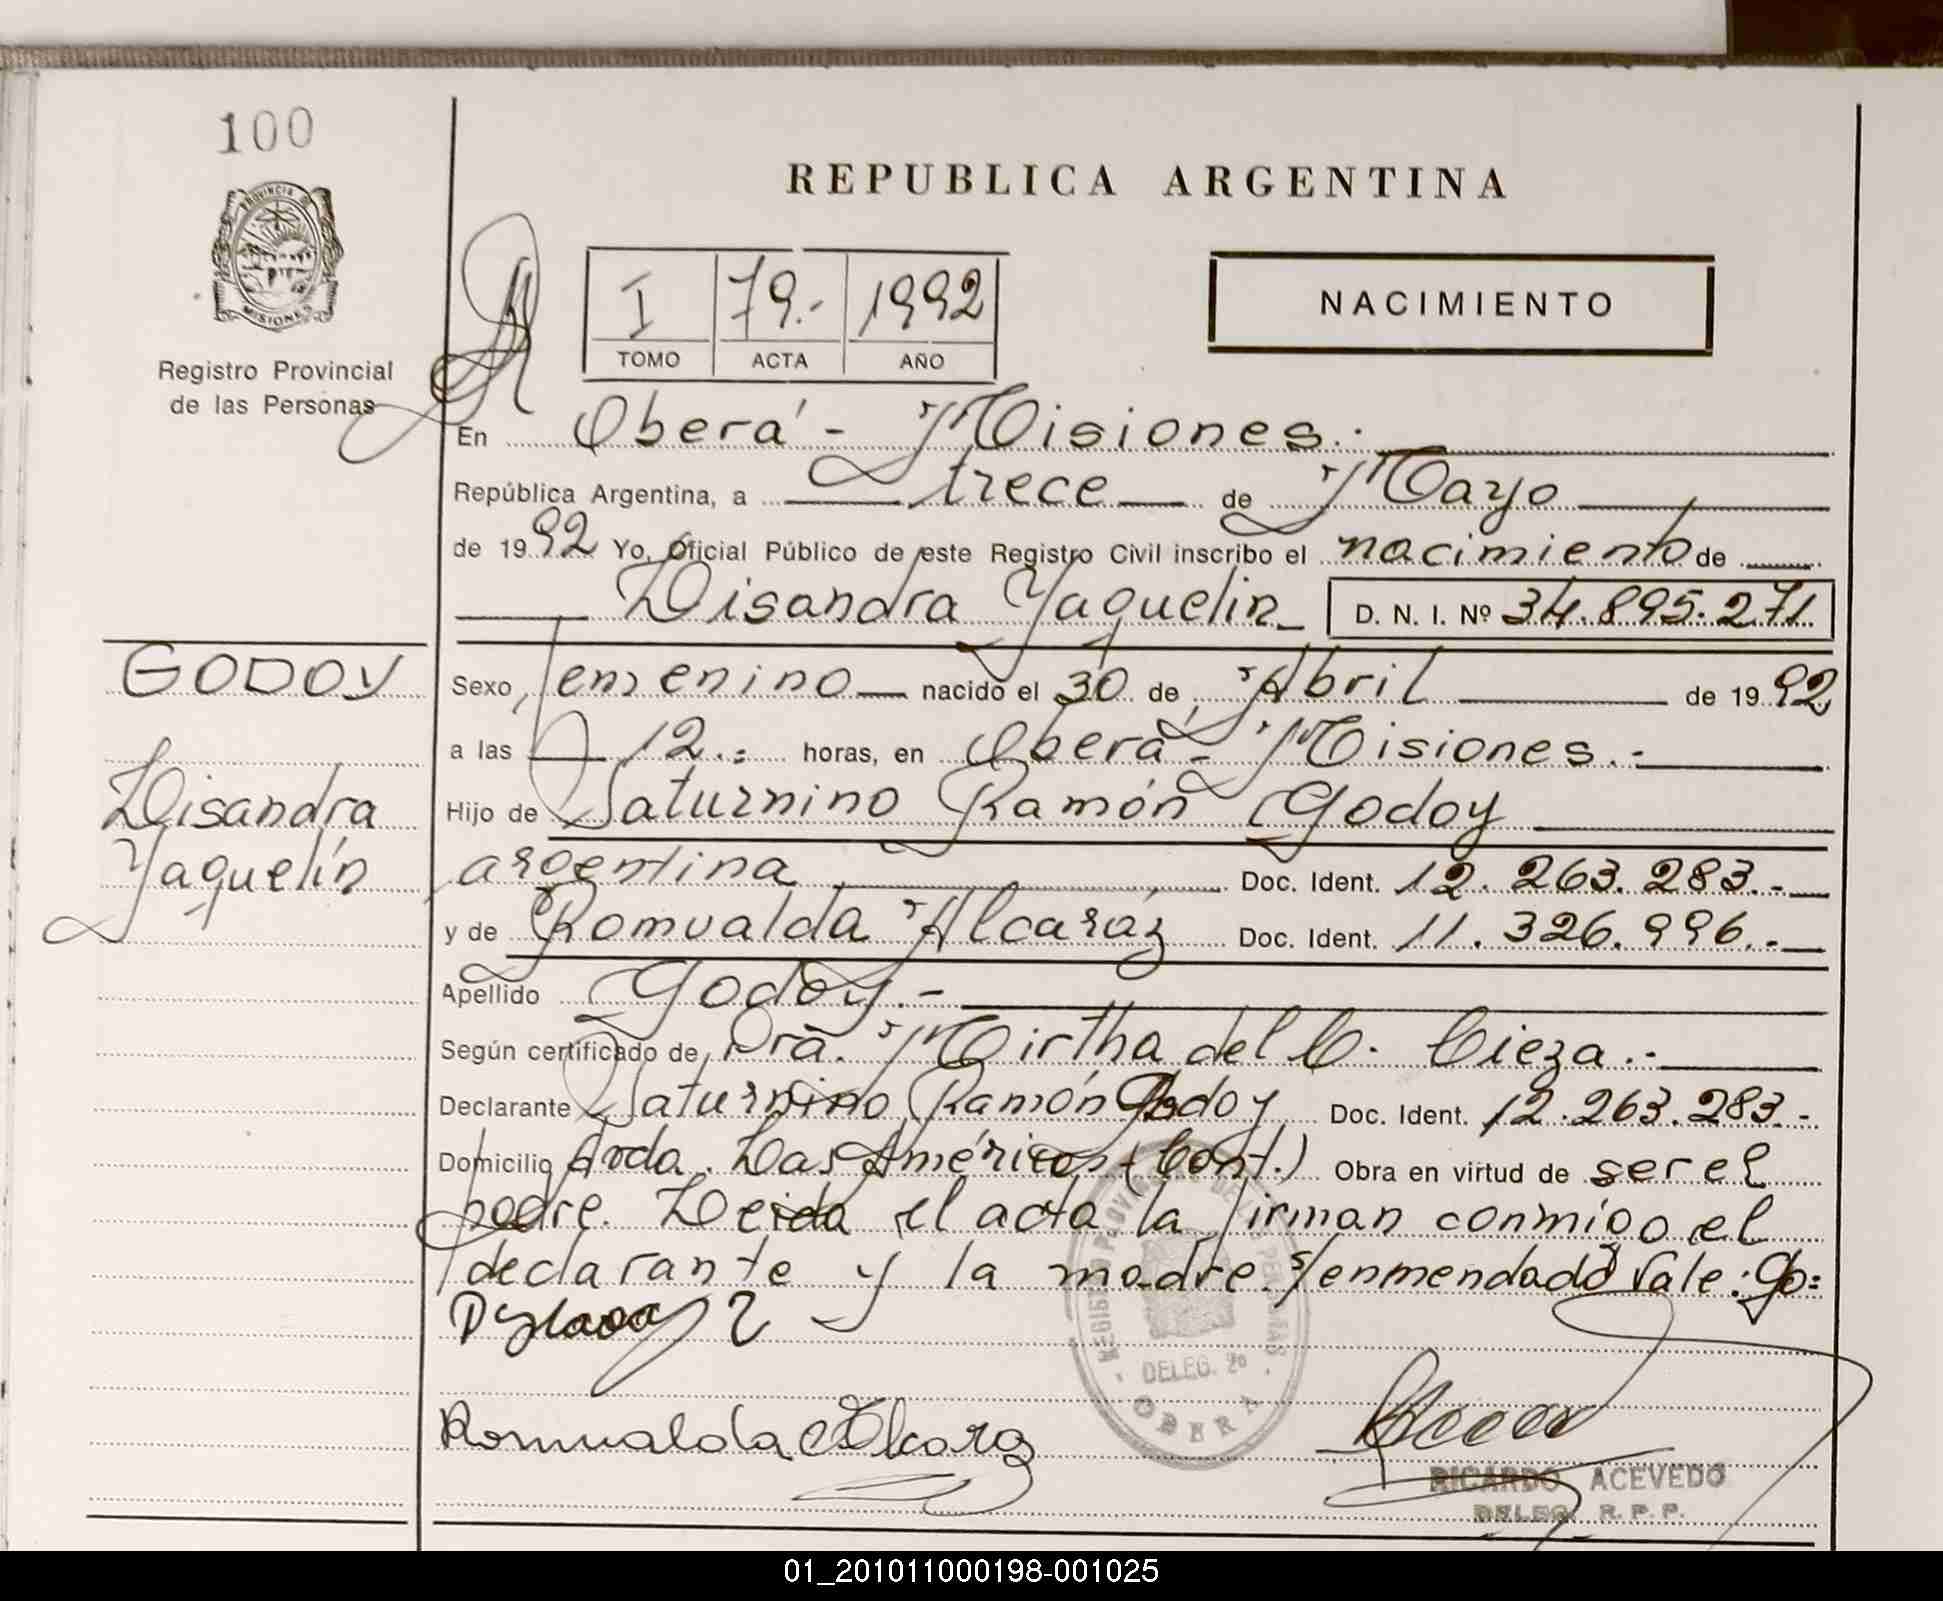 100
PROVINCIA DE
MISIONES
Registro Provincial
de las Personas
REPUBLICA ARGENTINA
I 79.- 1992
TOMO ACTA AÑO
NACIMIENTO
En Oberá - Misiones.-
República Argentina, a trece de Mayo
de 1992 Yo, Oficial Público de este Registro Civil inscribo el nacimiento de
Lisandra Yaquelin D. N. I. Nº 34.895.271
GODOY
Lisandra
Yaquelín
Sexo femenino nacido el 30 de Abril de 1992
a las 12.- horas, en Oberá - Misiones.-
Hijo de Saturnino Ramón Godoy
argentina Doc. Ident. 12.263.283.-
y de Romualda Alcaráz Doc. Ident. 11.326.996.-
Apellido Godoy.-
Según certificado de Dra. Mirtha del C. Cieza.-
Declarante Saturnino Ramón Godoy Doc. Ident. 12.263.283.-
Domicilio Avda. Las Américas (Cont.) Obra en virtud de ser el
padre. Leida el acta la firman conmigo el
declarante y la madre. s/enmendado Vale: Go=
REGISTRO PROVINCIAL DE LAS PERSONAS
DELEG. 2º
OBERA
Romualda Alcaraz
RICARDO ACEVEDO
DELEG. R. P. P.
01_201011000198-001025